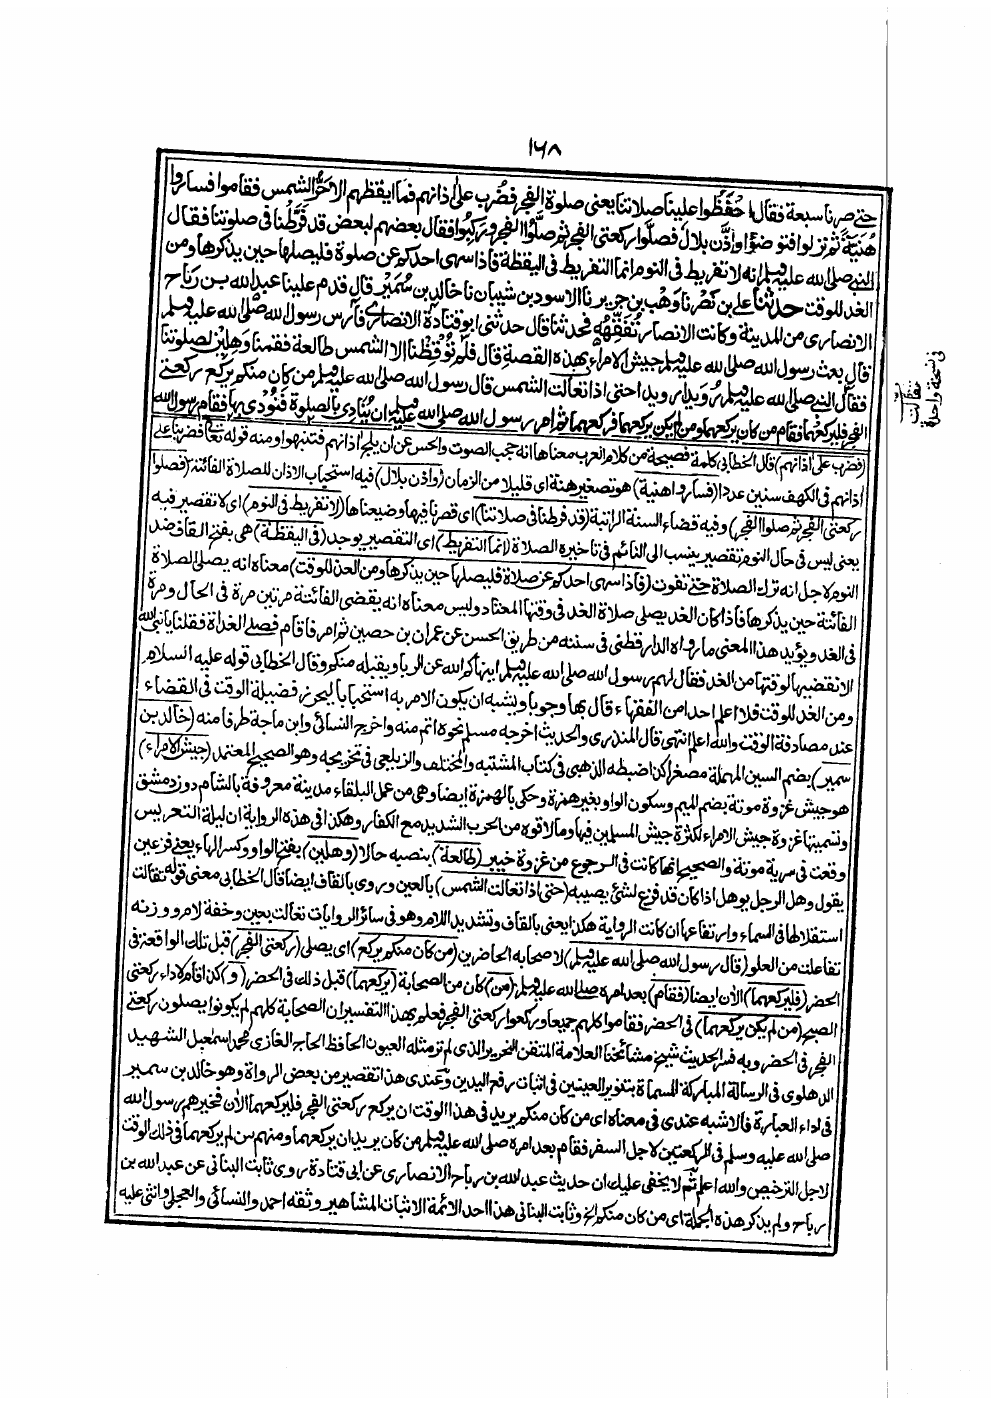 ١٦٨
حتى صرنا سبعة فقال احْفَظُوا علينا صلاتنا يعنى صلوة الفجر فضُرِب على اٰذانهم فما ايقظهم الا حَرُّ الشمس فقاموا فساروا
هُنَيَّةً ثم نزلوا فتوضؤا واَذَّن بلال فصلَّوا ركعتى الفجر ثم صلَّوا الفجر و ركبوا فقال بعضهم لبعض قد فَرَّطْنا فى صلوتنا فقال
النبى صلى الله عليه وسلم انه لا تفريط فى النوم انما التفريط فى اليقظة فاذا سهى احدكم عن صلوة فليصلها حين يذكرها ومن
الغد للوقت حدثنا على بن نصر نا وَهْب بن جرير نا الاسود بن شيبان نا خالد بن سُمَيْر قال قدم علينا عبد الله بن رَبَاح
الانصارى من المدينة وكانت الانصار تُفَقِّهُه فحدثنا قال حدثنى ابو قتادة الانصارى فارس رسول الله صلى الله عليه وسلم
قال بعث رسول الله صلى الله عليه وسلم جيش الامراء بهذه القصة قال فلم تُوْقِظْنا الا الشمس طالعة فقمنا وَهِلِيْن لصلوتنا
فقال النبى صلى الله عليه وسلم رُوَيدا رويدا حتى اذا تعالت الشمس قال رسول الله صلى الله عليه وسلم من كان منكم يركع ركعتى
الفجر فليركعهما فقام من كان يركعهما ومن لم يكن يركعهما فركعهما ثم امر رسول الله صلى الله عليه وسلم ان يُنَادى بالصلوة فنودى بها فقام رسول الله
(فضرب على اٰذانهم) قال الخطابى كلمة فصيحة من كلام العرب معناها انه حجب الصوت والحس عن ان يلج اٰذانهم فتنبهوا ومنه قوله تعالى فضربنا على
اٰذانهم فى الكهف سنين عددا (فساروا هنية) هو تصغير هنة اى قليلا من الزمان (واذن بلال) فيه استحباب الاذان للصلاة الفائتة (فصلوا
ركعتى الفجر ثم صلوا الفجر) وفيه قضاء السنة الراتبة (قد فرطنا فى صلاتنا) اى قصرنا فيها وضيعناها (لا تفريط فى النوم) اى لا تقصير فيه
يعنى ليس فى حال النوم تقصير ينسب الى النائم فى تاخيره الصلاة (انما التفريط) اى التقصير يوجد (فى اليقظة) هى بفتح القاف ضد
النوم لاجل انه ترك الصلاة حتى تفوت (فاذا سهى احدكم عن صلاة فليصلها حين يذكرها ومن الغد للوقت) معناه انه يصلى الصلاة
الفائتة حين يذكرها فاذا كان الغد يصلى صلاة الغد فى وقتها المعتاد وليس معناه انه يقضى الفائتة مرتين مرة فى الحال ومرة
فى الغد ويؤيد هذا المعنى ما رواه الدارقطنى فى سننه من طريق الحسن عن عمران بن حصين ثم امر فاقام فصلى الغداة فقلنا يا نبى الله
الا نقضيها لوقتها من الغد فقال لهم رسول الله صلى الله عليه وسلم اينهاكم الله عن الربا ويقبله منكم وقال الخطابى قوله عليه السلام
ومن الغد للوقت فلا اعلم احدا من الفقهاء قال بها وجوبا ويشبه ان يكون الامر به استحبابا ليحرز فضيلة الوقت فى القضاء
عند مصادفة الوقت والله اعلم انتهى قال المنذرى والحديث اخرجه مسلم نحوه اتم منه واخرج النسائى وابن ماجة طرفا منه (خالد بن
سمير) بضم السين المهملة مصغرا كذا ضبطه الذهبى فى كتاب المشتبه والمختلف والزيلعى فى تخريجه وهو الصحيح المعتمد (جيش الامراء)
هو جيش غزوة موتة بضم الميم وسكون الواو بغير همزة وحكى بالهمزة ايضا وهى من عمل البلقاء مدينة معروفة بالشام دون دمشق
وتسميتها غزوة جيش الامراء لكثرة جيش المسلمين فيها وما لاقوه من الحرب الشديد مع الكفار وهكذا فى هذه الرواية ان ليلة التعريس
وقعت فى سرية موتة والصحيح انها كانت فى الرجوع من غزوة خيبر (طالعة) بنصبه حالا (وهلين) بفتح الواو وكسر الهاء يعنى فزعين
يقول وهل الرجل يوهل اذا كان قد فزع لشئ يصيبه (حتى اذا تعالت الشمس) بالعين وروى بالقاف ايضا قال الخطابى معنى قوله تقالت
استقلالها فى السماء وارتفاعها ان كانت الرواية هكذا يعنى بالقاف وتشديد اللام وهو فى سائر الروايات تعالت بعين وخفة لام ووزنه
تفاعلت من العلو (قال رسول الله صلى الله عليه وسلم) لاصحابه الحاضرين (من كان منكم يركع) اى يصلى (ركعتى الفجر) قبل تلك الواقعة فى
الحضر (فليركعهما) الاٰن ايضا (فقام) بعد امره صلى الله عليه وسلم (من) كان من الصحابة (يركعهما) قبل ذلك فى الحضر (و) كذا قام لاداء ركعتى
الصبح (من لم يكن يركعهما) فى الحضر فقاموا كلهم جميعا وركعوا ركعتى الفجر فعلم بهذا التفسير ان الصحابة كلهم لم يكونوا يصلون ركعتى
الفجر فى الحضر وبه فسر الحديث شيخ مشائخنا العلامة المتقن النحرير الذى لم تر مثله العيون الحافظ الحاج الغازى محمد اسمعيل الشهيد
الدهلوى فى الرسالة المباركة المسماة بتنوير العينين فى اثبات رفع اليدين وعندى هذا تقصير من بعض الرواة وهو خالد بن سمير
فى اداء العبارة فالاشبه عندى فى معناه اى من كان منكم يريد فى هذا الوقت ان يركع ركعتى الفجر فليركعهما الاٰن فخيرهم رسول الله
صلى الله عليه وسلم فى الركعتين لاجل السفر فقام بعد امره صلى الله عليه وسلم من كان يريد ان يركعهما ومنهم من لم يركعهما فى ذلك الوقت
لاجل الترخيص والله اعلم ثم لا يخفى عليك ان حديث عبد الله بن رباح الانصارى عن ابى قتادة روى ثابت البنانى عن عبد الله بن
رباح ولم يذكر هذه الجملة اى من كان منكم الخ وثابت البنانى هذا احد الائمة الاثبات المشاهير وثقه احمد والنسائى والعجلى واثنى عليه
تقالت
فى نسخة واحدة